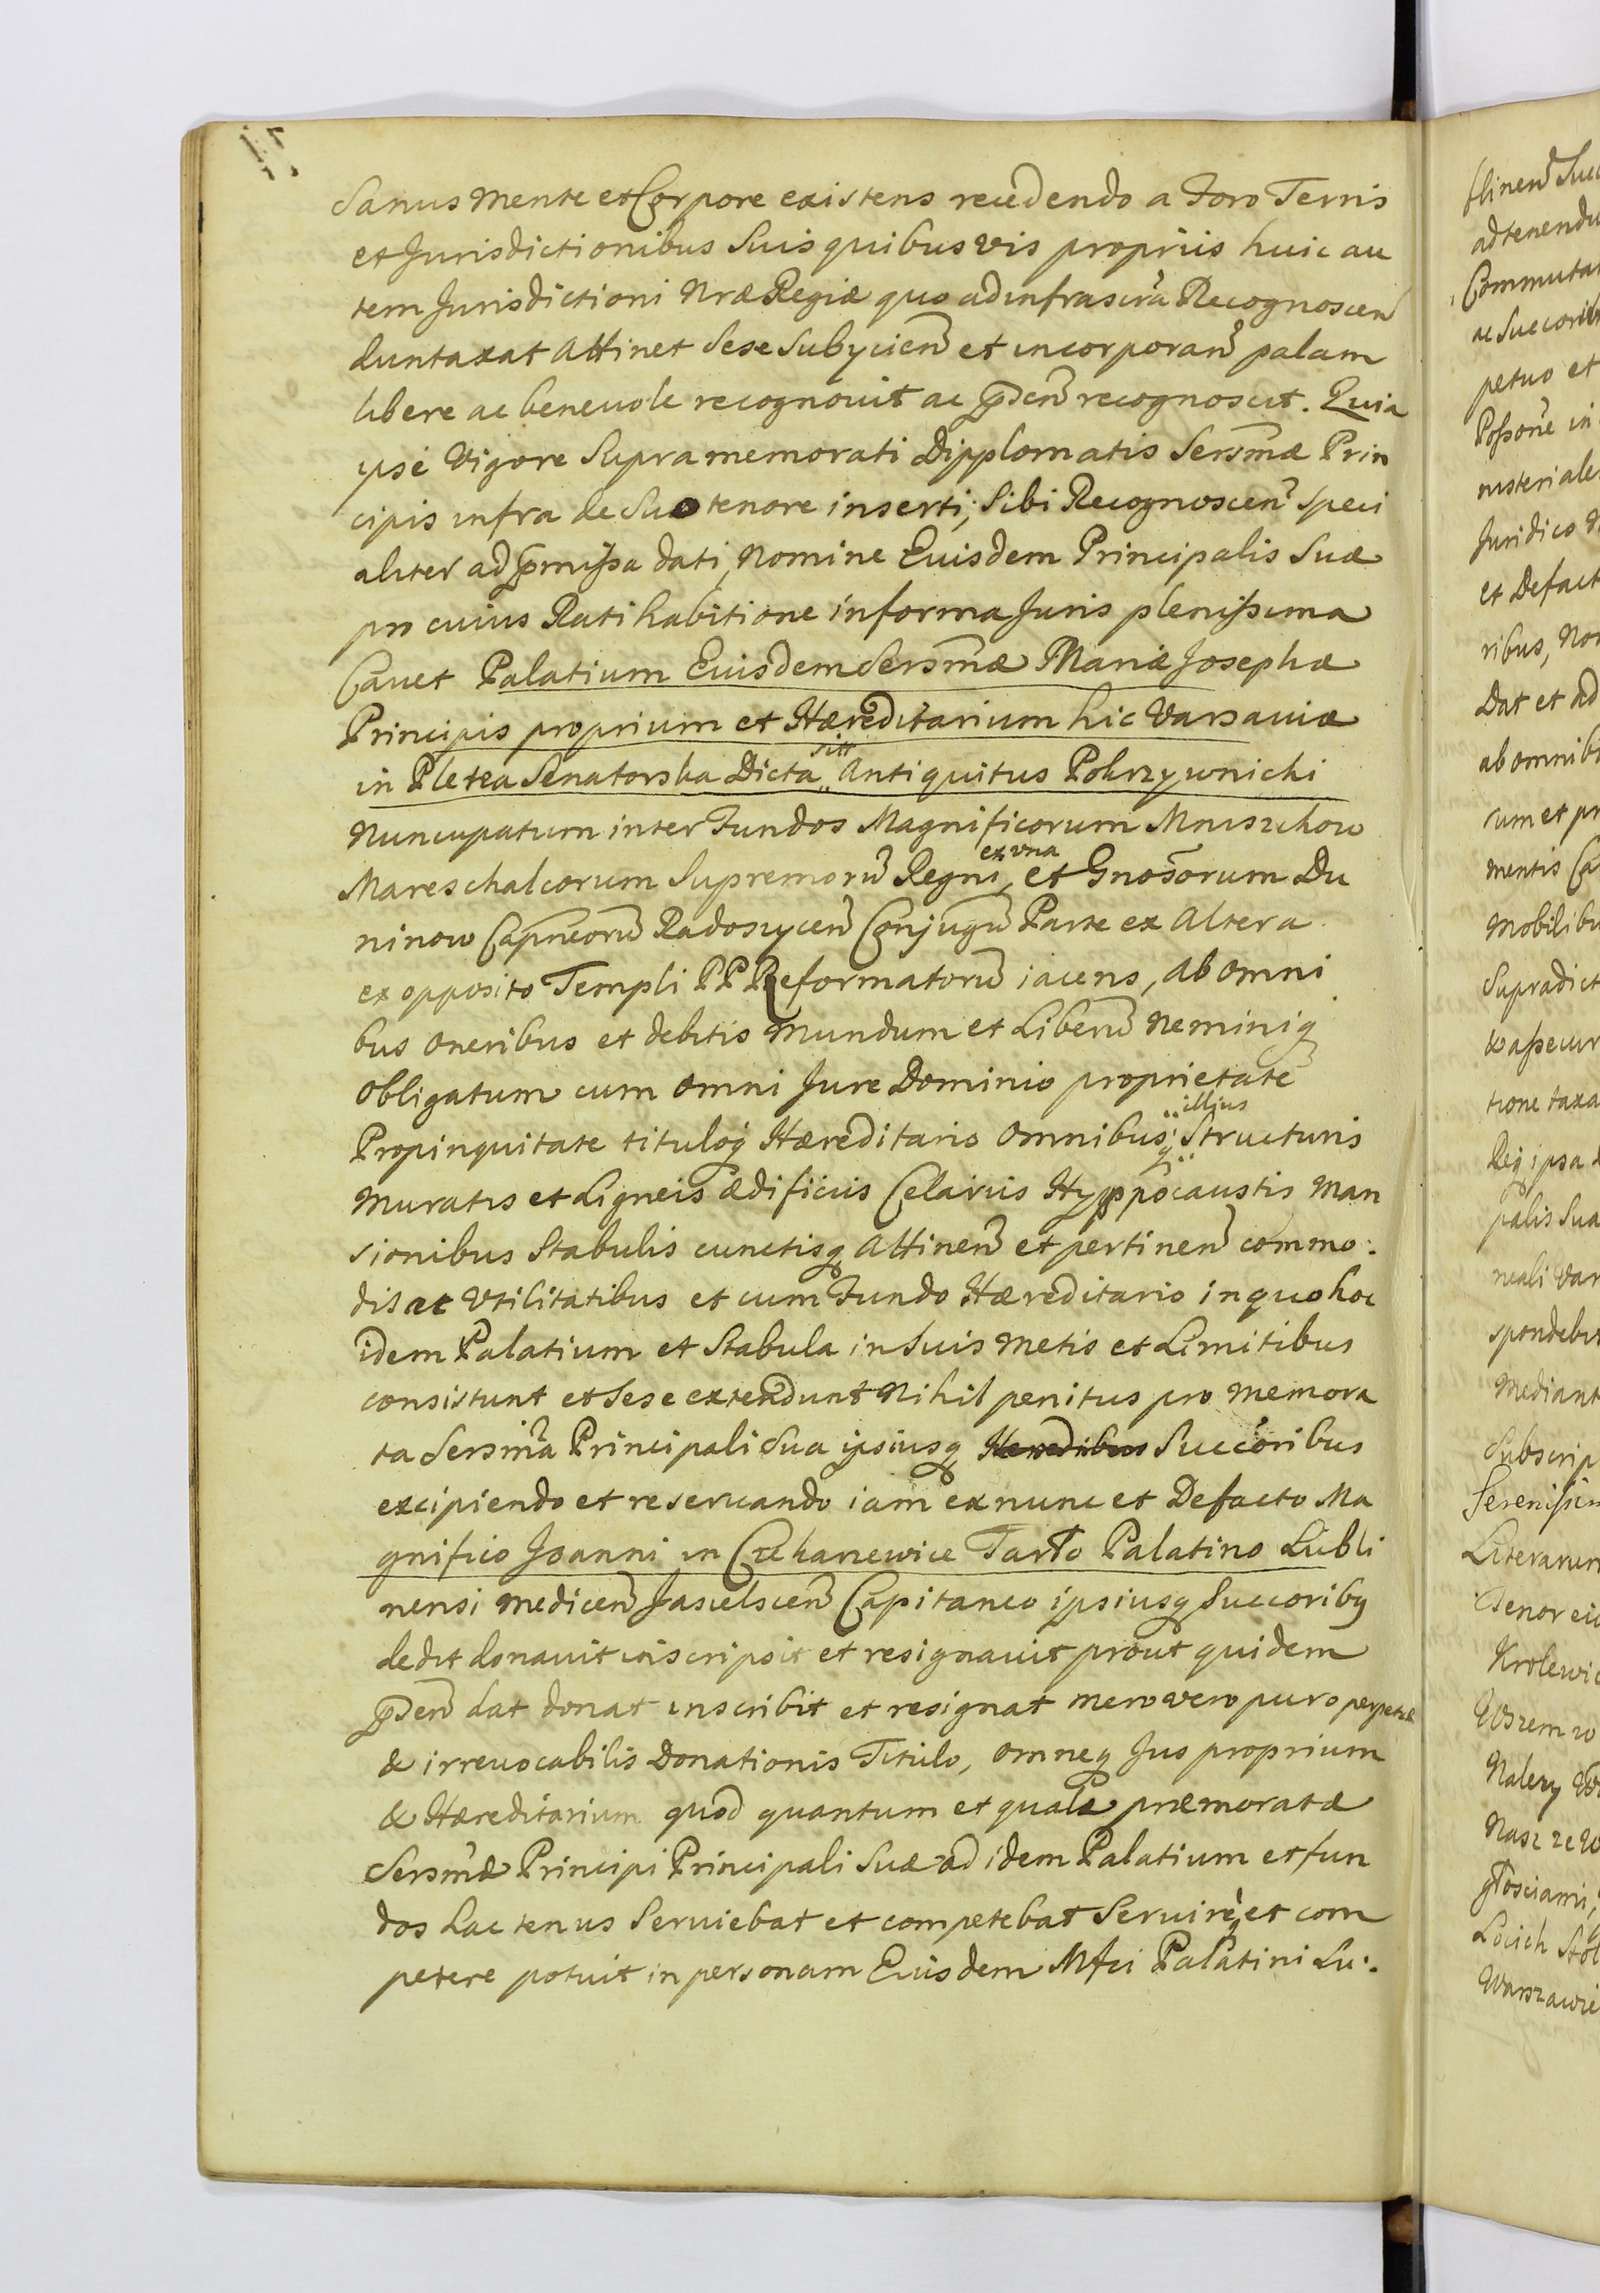 Sanus mente et Corpore existens recedendo a Foro Terris
et Jurisdictionibus Suis quibusvis propriis huic au
tem Jurisdictioni Nræ Regiæ quo ad infrascra Recognoscen
duntaxat Attinet Sese Subyicien et incorporan palam
libere ac benevole recognovit ac pden recognoscit. Quia
ipse Vigore Supramemorati Dipplomatis Sersmæ Prin
cipis infra de Suo tenore inserti, Sibi Recognoscen Speci
aliter ad pmissa dati, Nomine Eiusdem Principalis Suæ
pro cuius Rati habitione in forma Juris plenissima
Cavet Palatium Eiusdem Sersmæ Mariæ Josephæ
Principis proprium et Hæreditarium hic Varsaviæ
in Pletea Senatorska Dicta Sitt Antiquitus Pokrzywnicki
Nuncupatum inter Fundos Magnificorum Mniszchow
Mareschalcorum Supremoru Regni, ex vna et Gnosorum Du
ninow Capneoru Radoszycen Conjugu Parte ex Altera
ex opposito Templi PP Reformatoru iacens, ab omni
bus oneribus et debitis Mundum et Liberu Neminiq
obligatum cum omni Jure Dominio proprietate
Propinquitate tituloq Hæreditario omnibusq illius Structuris
Muratis et Ligneis ædificiis Celariis Hyppocaustis Man
sionibus Stabulis cunctisq Attinen et pertinen commo:
dis ac Vtilitatibus et cum Fundo Hæreditario in quo hoc
idem Palatium et Stabula in Suis Metis et Limitibus
consistunt et Sese extendunt Nihil penitus pro memora
ta Sersma Principali Sua ipsiusq Heredibus Succoribus
excipiendo et reservando iam ex nunc et Defacto Ma
gnifico Joanni in Czekarzewice Tarło Palatino Lubli
nensi Medicen Jasielscen Capitaneo ipsiusq Succoribq
dedit donavit inscripsit et resignavit prout quidem
pden dat donat inscribit et resignat mero vero puro perpetuæ
& irrevocabilis Donationis Titulo, omneq Jus proprium
& Hæreditarium quod quantum et quale præmoratæ
Sersmæ Principi Principali Suæ ad idem Palatium et fun
dos hactenus Serviebat et competebat Servireq et com
petere potuit in personam Eiusdem Mfci Palatini Lu: